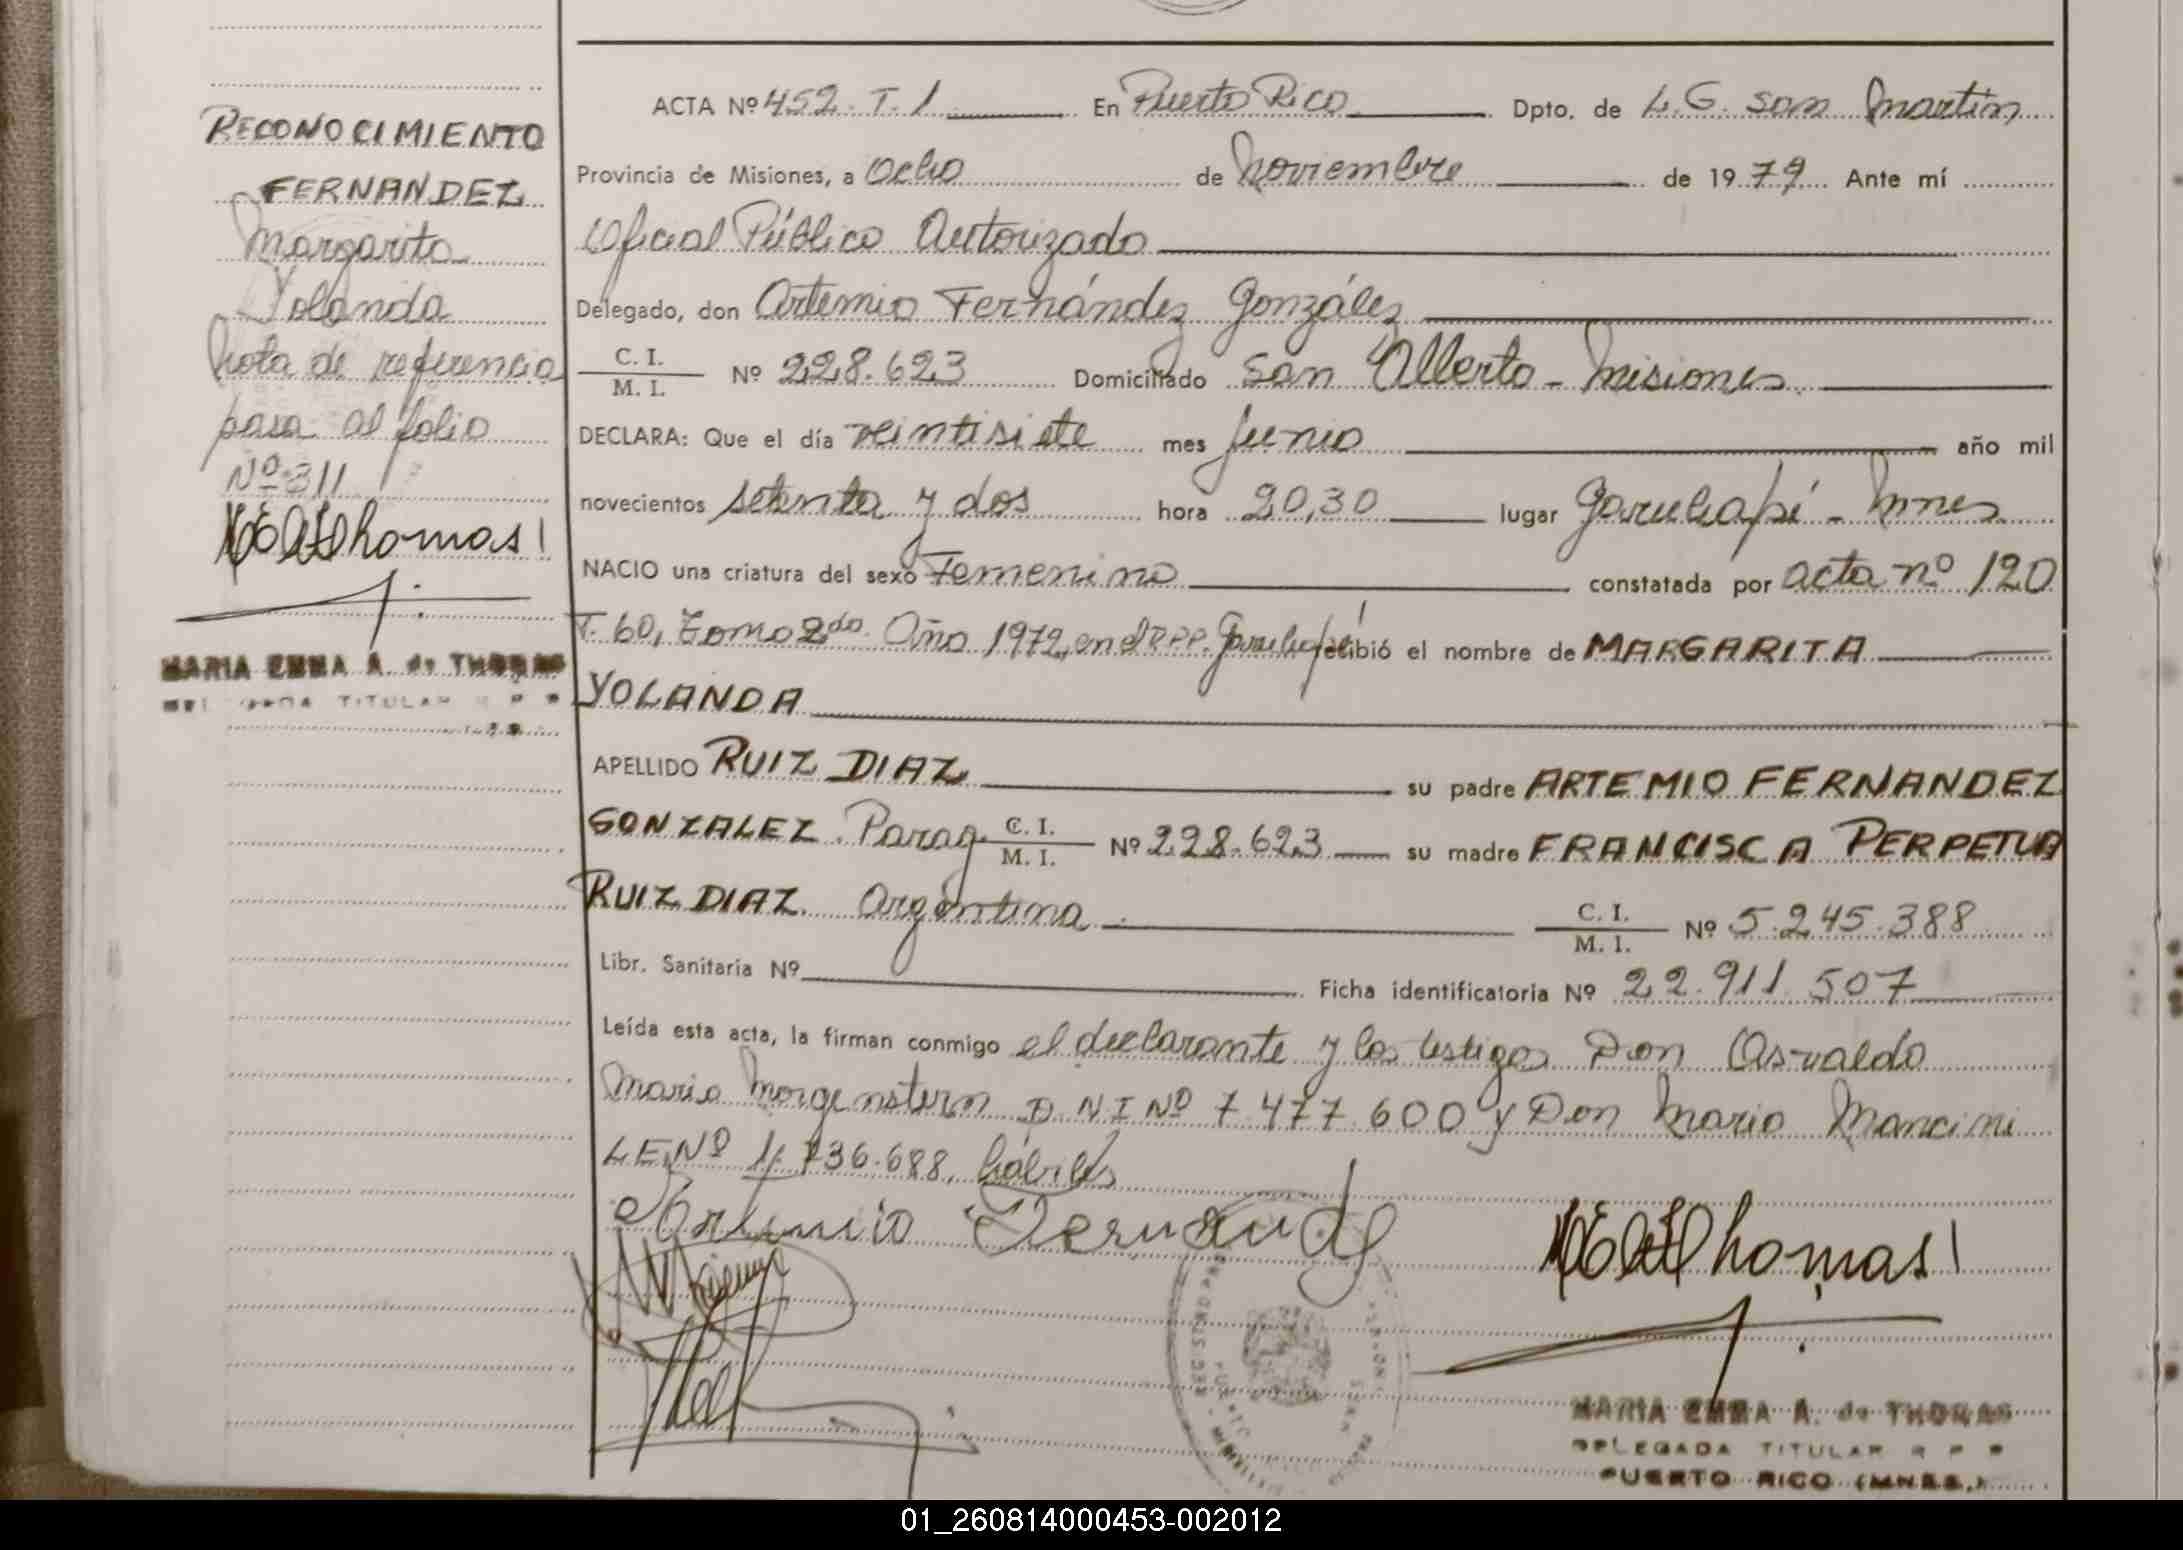 RECONOCIMIENTO
FERNANDEZ
Margarita
Yolanda
Nota de referencia
para al folio
Nº 311
MEAdThomas
MARIA EMMA A. de THOMAS
DELEGADA TITULAR R P P
ACTA Nº 452. T. 1 En Puerto Rico Dpto. de L. G. San Martín
Provincia de Misiones, a Ocho de Noviembre de 1979. Ante mí
Oficial Público Autorizado
Delegado, don Artemio Fernández González
C. I. / M. I. Nº 228.623 Domiciliado San Alberto - Misiones
DECLARA: Que el día veintisiete mes Junio año mil
novecientos setenta y dos hora 20,30 lugar Garuhapé - Mnes
NACIO una criatura del sexo Femenino constatada por acta nº 120
T. 60, Tomo 2do. Año 1972, en el R.P.P. Garuhapé recibió el nombre de MARGARITA
YOLANDA
APELLIDO RUIZ DIAZ su padre ARTEMIO FERNANDEZ
GONZALEZ. Parag. C. I. / M. I. Nº 228.623 su madre FRANCISCA PERPETUA
RUIZ DIAZ. Argentina C. I. / M. I. Nº 5.245.388
Libr. Sanitaria Nº Ficha identificatoria Nº 22.911.507
Leída esta acta, la firman conmigo el declarante y los testigos Don Osvaldo
Mario Morgenstern D N I Nº 7.477.600 y Don Mario Mancini
LE Nº 1.736.688, hábiles
Artemio Fernandez
MEAdThomas
MARIA EMMA A. de THOMAS
DELEGADA TITULAR R P P
PUERTO RICO (MNES.)
01_260814000453-002012